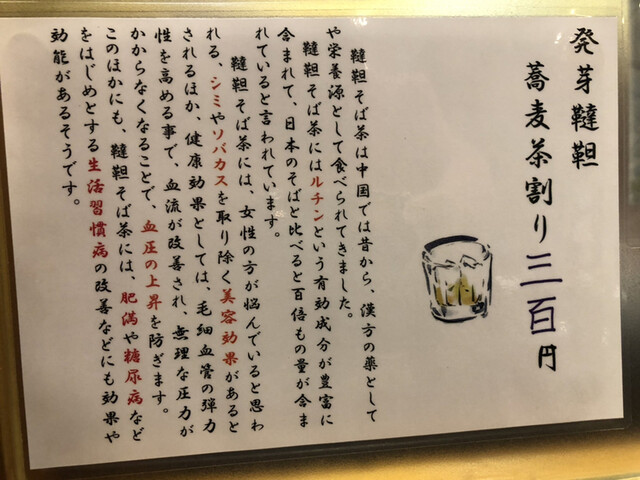 発芽韃靼
蕎麦茶割り三百円
韃靼そば茶は中国では昔から、漢方の薬として
や栄養源として食べられてきました。
韃靼そば茶にはルチンという有効成分が豊富に
含まれて、日本のそばと比べると百倍もの量が含ま
れていると言われています。
韃靼そば茶には、女性の方が悩んでいると思わ
れる、シミやソバカスを取り除く美容効果があると
されるほか、健康効果としては、毛細血管の弾力
性を高める事で、血流が改善され、無理な圧力が
かからなくなることで、血圧の上昇を防ぎます。
このほかにも、韃靼そば茶には、肥満や糖尿病など
をはじめとする生活習慣病の改善などにも効果や
効能があるそうです。